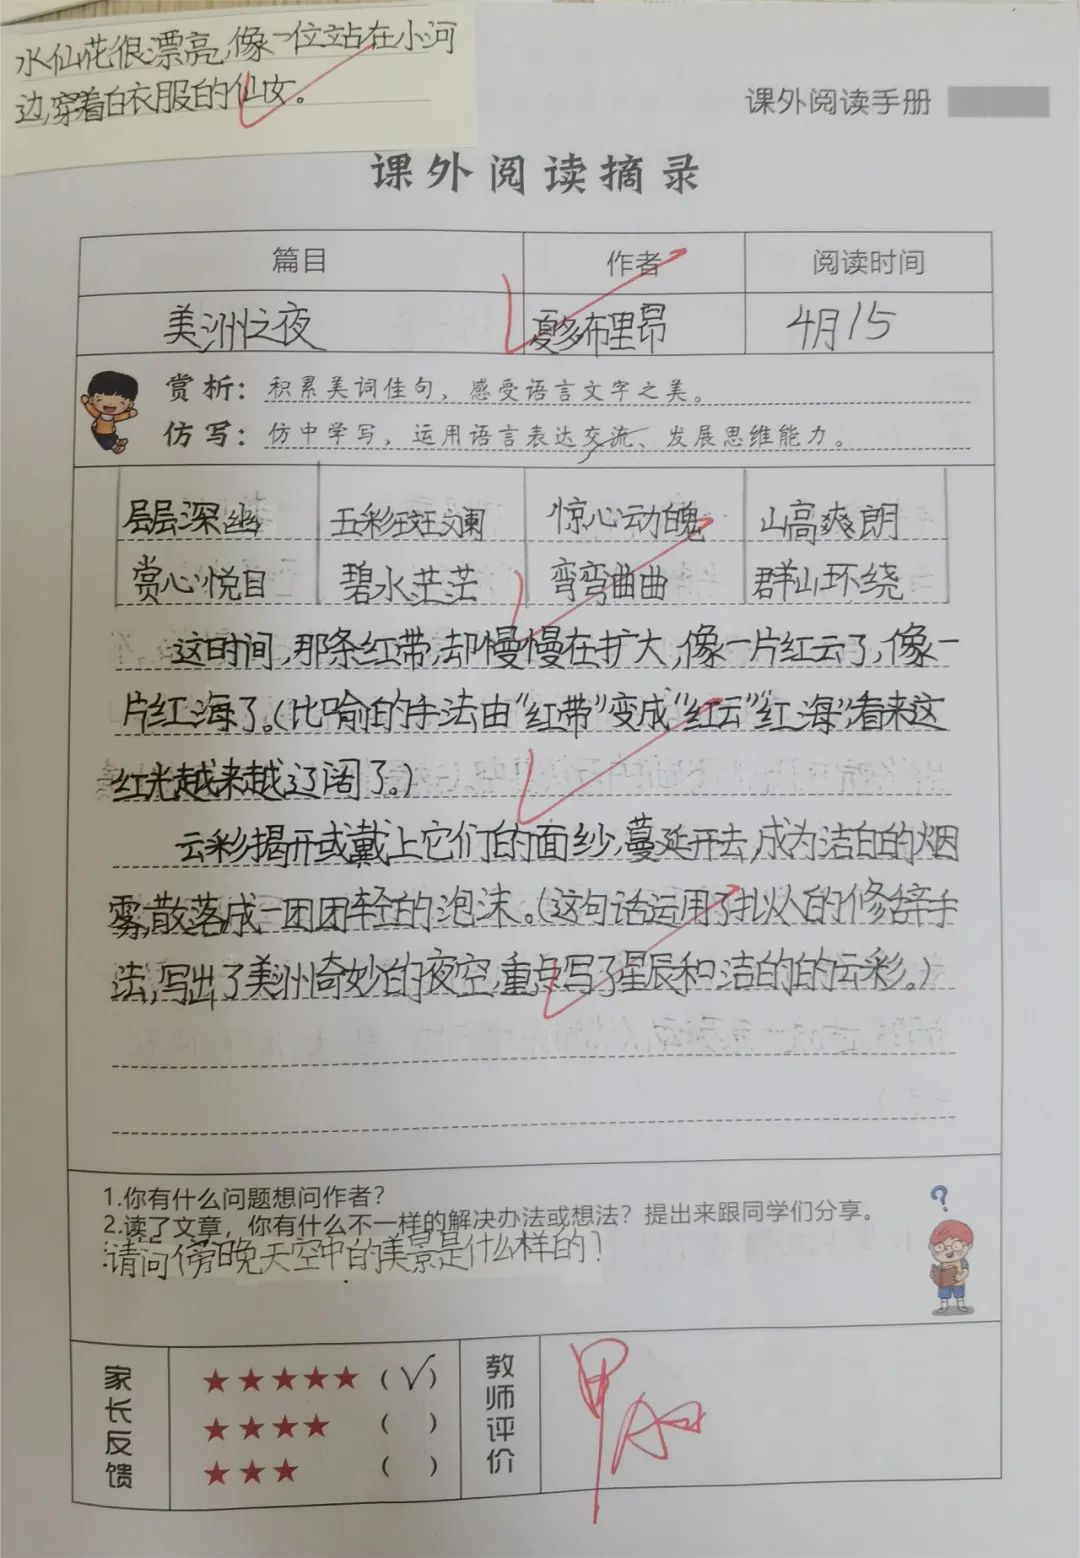 水仙花很漂亮,像一位站在小河
边,穿着白衣服的仙女。
课外阅读手册
课外阅读摘录
篇目 作者 阅读时间
美洲之夜 夏多布里昂 4月15
赏析：积累美词佳句，感受语言文字之美。
仿写：仿中学写，运用语言表达交流、发展思维能力。
层层深幽 五彩斑斓 惊心动魄 山高爽朗
赏心悦目 碧水茫茫 弯弯曲曲 群山环绕
这时间,那条红带,却慢慢在扩大,像一片红云了,像一
片红海了。(比喻的手法由“红带”变成“红云”“红海”看来这
红光越来越辽阔了。)
云彩揭开或戴上它们的面纱,蔓延开去,成为洁白的烟
雾,散落成一团团轻的泡沫。(这句话运用了拟人的修辞手
法,写出了美洲奇妙的夜空,重点写了星辰和洁的的云彩。)
1.你有什么问题想问作者？
2.读了文章，你有什么不一样的解决办法或想法？提出来跟同学们分享。
请问傍晚天空中的美景是什么样的!
家长反馈 ★★★★★ (√) 教师评价 甲
★★★★ ( )
★★★ ( )